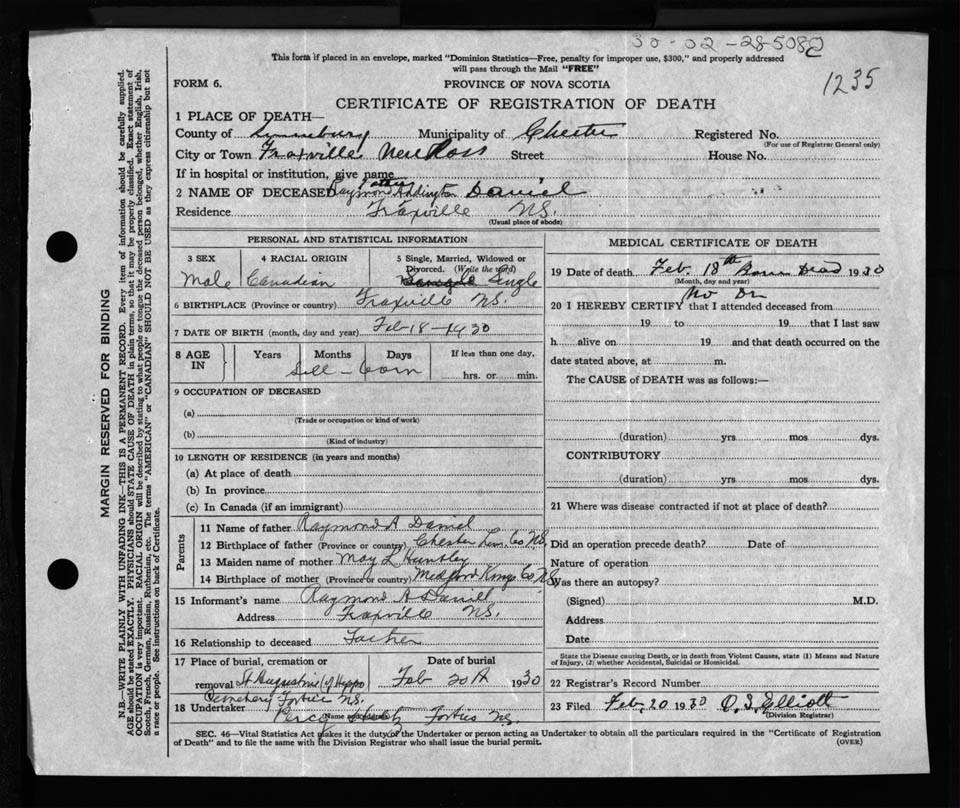 30-02-285080
This form if placed in an envelope, marked "Dominion Statistics—Free, penalty for improper use, $300," and properly addressed
will pass through the Mail "FREE"
1235
FORM 6.
PROVINCE OF NOVA SCOTIA
CERTIFICATE OF REGISTRATION OF DEATH
1 PLACE OF DEATH—
County of Lunenburg Municipality of Chester Registered No.
(For use of Registrar General only)
City or Town Fraxville New Ross Street House No.
If in hospital or institution, give name
2 NAME OF DECEASED Raymond Addington Daniel
Residence Fraxville NS.
(Usual place of abode)
PERSONAL AND STATISTICAL INFORMATION
3 SEX Male
4 RACIAL ORIGIN Canadian
5 Single, Married, Widowed or Divorced. (Write the word) Single
6 BIRTHPLACE (Province or country) Fraxville NS.
7 DATE OF BIRTH (month, day and year) Feb-18-1930
8 AGE IN Years Months Days If less than one day,
Sill-born hrs. or min.
9 OCCUPATION OF DECEASED
(a)
(Trade or occupation or kind of work)
(b)
(Kind of industry)
10 LENGTH OF RESIDENCE (in years and months)
(a) At place of death
(b) In province
(c) In Canada (if an immigrant)
Parents
11 Name of father Raymond A Daniel
12 Birthplace of father (Province or country) Chester Lun. Co NS.
13 Maiden name of mother May L Huntley
14 Birthplace of mother (Province or country) Medford Kings Co NS.
15 Informant's name Raymond A Daniel
Address Fraxville NS.
16 Relationship to deceased Father
17 Place of burial, cremation or Date of burial
removal St Augustine of Hippo Feb 20th 1930
Cemetery Forties NS.
18 Undertaker Percy Forties NS.
(Name and address)
MEDICAL CERTIFICATE OF DEATH
19 Date of death Feb. 18th Born Dead 1930
(Month, day and year)
No Dr
20 I HEREBY CERTIFY that I attended deceased from
19 to 19 that I last saw
h alive on 19 and that death occurred on the
date stated above, at m.
The CAUSE of DEATH was as follows:—
(duration) yrs mos dys.
CONTRIBUTORY
(duration) yrs mos dys.
21 Where was disease contracted if not at place of death?
Did an operation precede death? Date of
Nature of operation
Was there an autopsy?
(Signed) M.D.
Address
Date
State the Disease causing Death, or in death from Violent Causes, state (1) Means and Nature
of Injury, (2) whether Accidental, Suicidal or Homicidal.
22 Registrar's Record Number
23 Filed Feb, 20 1930 O.S. Elliott
(Division Registrar)
SEC. 46—Vital Statistics Act makes it the duty of the Undertaker or person acting as Undertaker to obtain all the particulars required in the "Certificate of Registration
of Death" and to file the same with the Division Registrar who shall issue the burial permit.
(OVER)
MARGIN RESERVED FOR BINDING
N.B.—WRITE PLAINLY WITH UNFADING INK—THIS IS A PERMANENT RECORD. Every item of information should be carefully supplied.
AGE should be stated EXACTLY. PHYSICIANS should STATE CAUSE OF DEATH in plain terms, so that it may be properly classified. Exact statement of
OCCUPATION is very important. RACIAL ORIGIN will be described by stating to what people or tongue the deceased person belonged, whether English, Irish,
Scotch, French, German, Russian, Ruthenian, etc. The terms "AMERICAN" or "CANADIAN" SHOULD NOT BE USED as they express citizenship but not
a race or people. See instructions on back of Certificate.